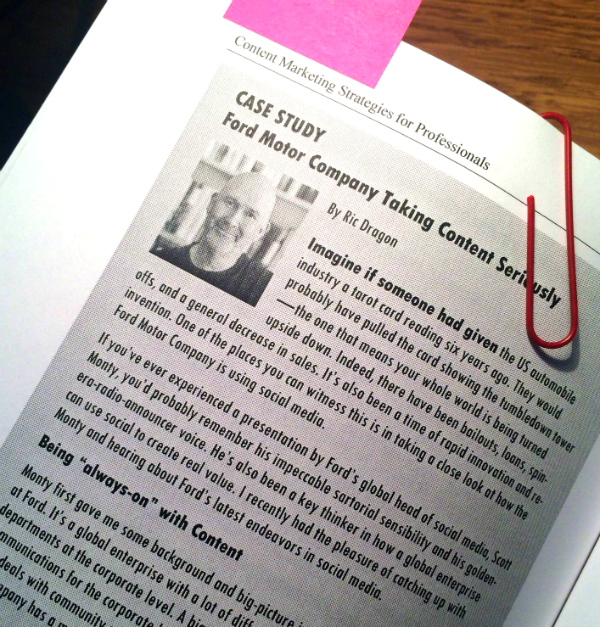 Content Marketing Strategies for Professionals
CASE STUDY
Ford Motor Company Taking Content Seriously
By Ric Dragon
Imagine if someone had given the US automobile
industry a tarot card reading six years ago. They would
probably have pulled the card showing the tumbledown tower
—the one that means your whole world is being turned
upside down. Indeed, there have been bailouts, loans, spin-
offs, and a general decrease in sales. It's also been a time of rapid innovation and re-
invention. One of the places you can witness this is in taking a close look at how the
Ford Motor Company is using social media.
If you've ever experienced a presentation by Ford's global head of social media, Scott
Monty, you'd probably remember his impeccable sartorial sensibility and his golden-
era-radio-announcer voice. He's also been a key thinker in how a global enterprise
can use social to create real value. I recently had the pleasure of catching up with
Monty and hearing about Ford's latest endeavors in social media.
Being "always-on" with Content
Monty first gave me some background and big-picture
at Ford. It's a global enterprise with a lot of
departments at the corporate level. A
for the corporate
deals with community
has a